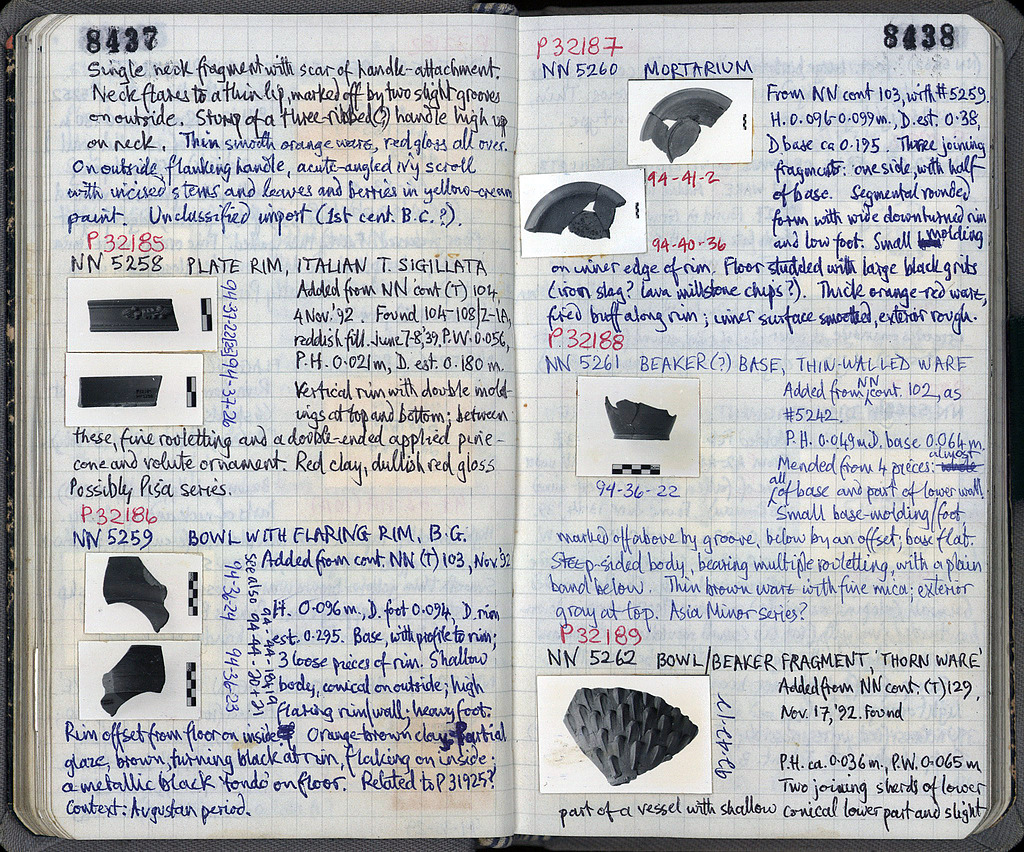 8437
Single neck fragment with scar of handle-attachment.
Neck flares to a thin lip, marked off by two slight grooves
on outside. Stump of a three-ribbed(?) handle high up
on neck. Thin smooth orange ware, red gloss all over.
On outside, flanking handle, acute-angled ivy scroll
with incised stems and leaves and berries in yellow-cream
paint. Unclassified import (1st cent. B.C.?).
P 32185
NN 5258 PLATE RIM, ITALIAN T. SIGILLATA
94-37-26
Added from NN cont (T) 104,
4 Nov. '92. Found 104-108/2-1A,
reddish fill. June 7-8, 39. P.W. 0.056,
P.H. 0.021m, D. est. 0.180 m.
Vertical rim with double mold-
ings at top and bottom; between
these, fine rouletting and a double-ended applied pine-
cone and volute ornament. Red clay, dullish red gloss
Possibly Pisa series.
P 32186
NN 5259 BOWL WITH FLARING RIM, B.G.
94-36-24
94-36-23
See also 94-44-18+19
94-44-20+21
Added from cont. NN (T) 103, Nov. '92
H. 0.096m, D. foot 0.094, D. rim
est. 0.295. Base, with profile to rim;
3 loose pieces of rim. Shallow
body, conical on outside; high
flaring rim/wall; heavy foot.
Rim offset from floor on inside. Orange-brown clay. Partial
glaze, brown, turning black at rim, flaking on inside;
a metallic black 'tondo' on floor. Related to P 31925?
Context: Augustan period.
8438
P 32187
NN 5260 MORTARIUM
94-41-2
94-40-36
From NN cont 103, with #5259.
H. 0.096-0.099m., D. est. 0.38,
D base ca 0.195. Three joining
fragments: one side, with half
of base. Segmental rounded
form with wide downturned rim
and low foot. Small molding
on inner edge of rim. Floor studded with large black grits
(iron slag? lava millstone chips?). Thick orange-red ware,
fired buff along rim; inner surface smoothed, exterior rough.
P 32188
NN 5261 BEAKER(?) BASE, THIN-WALLED WARE
94-36-22
Added from NN cont. 102, as
#5242.
P.H. 0.049m D. base 0.064 m.
Mended from 4 pieces: almost
all of base and part of lower wall.
Small base-molding/foot,
marked off above by groove, below by an offset; base flat.
Steep-sided body, bearing multiple rouletting, with a plain
band below. Thin brown ware with fine mica; exterior
gray at top. Asia Minor series?
P 32189
NN 5262 BOWL/BEAKER FRAGMENT, 'THORN WARE'
Added from NN cont. (T) 129,
Nov. 17, '92. Found
P.H. ca. 0.036m. P.W. 0.065 m
Two joining sherds of lower
part of a vessel with shallow conical lower part and slight